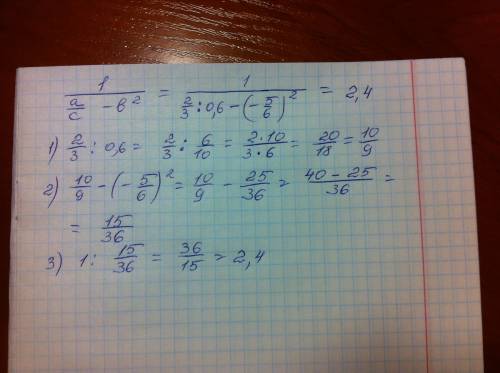 1/(a/c - в²) = 1/(2/3 : 0,6 - (-5/6)²) = 2,4
1) 2/3 : 0,6 = 2/3 : 6/10 = 2·10/3·6 = 20/18 = 10/9
2) 10/9 - (-5/6)² = 10/9 - 25/36 = 40-25/36 =
= 15/36
3) 1 : 15/36 = 36/15 = 2,4